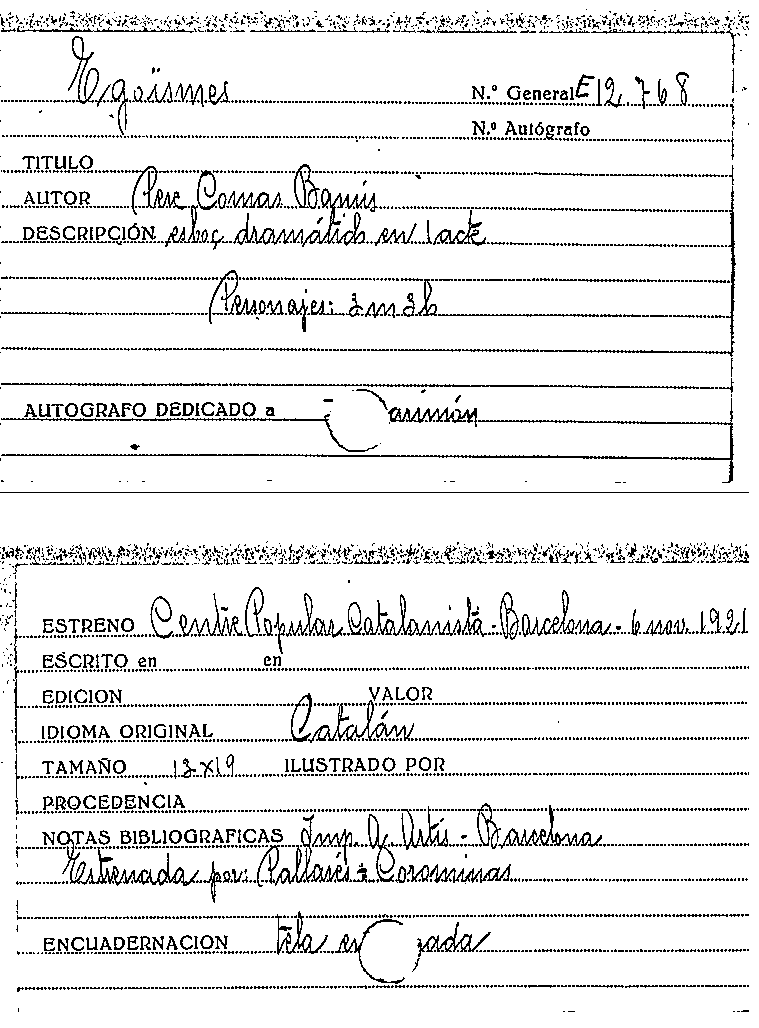 Egoïsmes
N.º General E 12.768
N.º Autógrafo
TITULO
AUTOR Pere Comas Bamís
DESCRIPCIÓN esboç dramátich en 1 acte
Personajes: 3m 3h
AUTOGRAFO DEDICADO a arimón
ESTRENO Centre Popular Catalanista - Barcelona - 6 nov. 1921
ESCRITO en en
EDICION VALOR
IDIOMA ORIGINAL Catalán
TAMAÑO 13x19 ILUSTRADO POR
PROCEDENCIA
NOTAS BIBLIOGRAFICAS Imp. A. Artís - Barcelona
Estrenada por: Pallarés - Corominas
ENCUADERNACION tela en zada